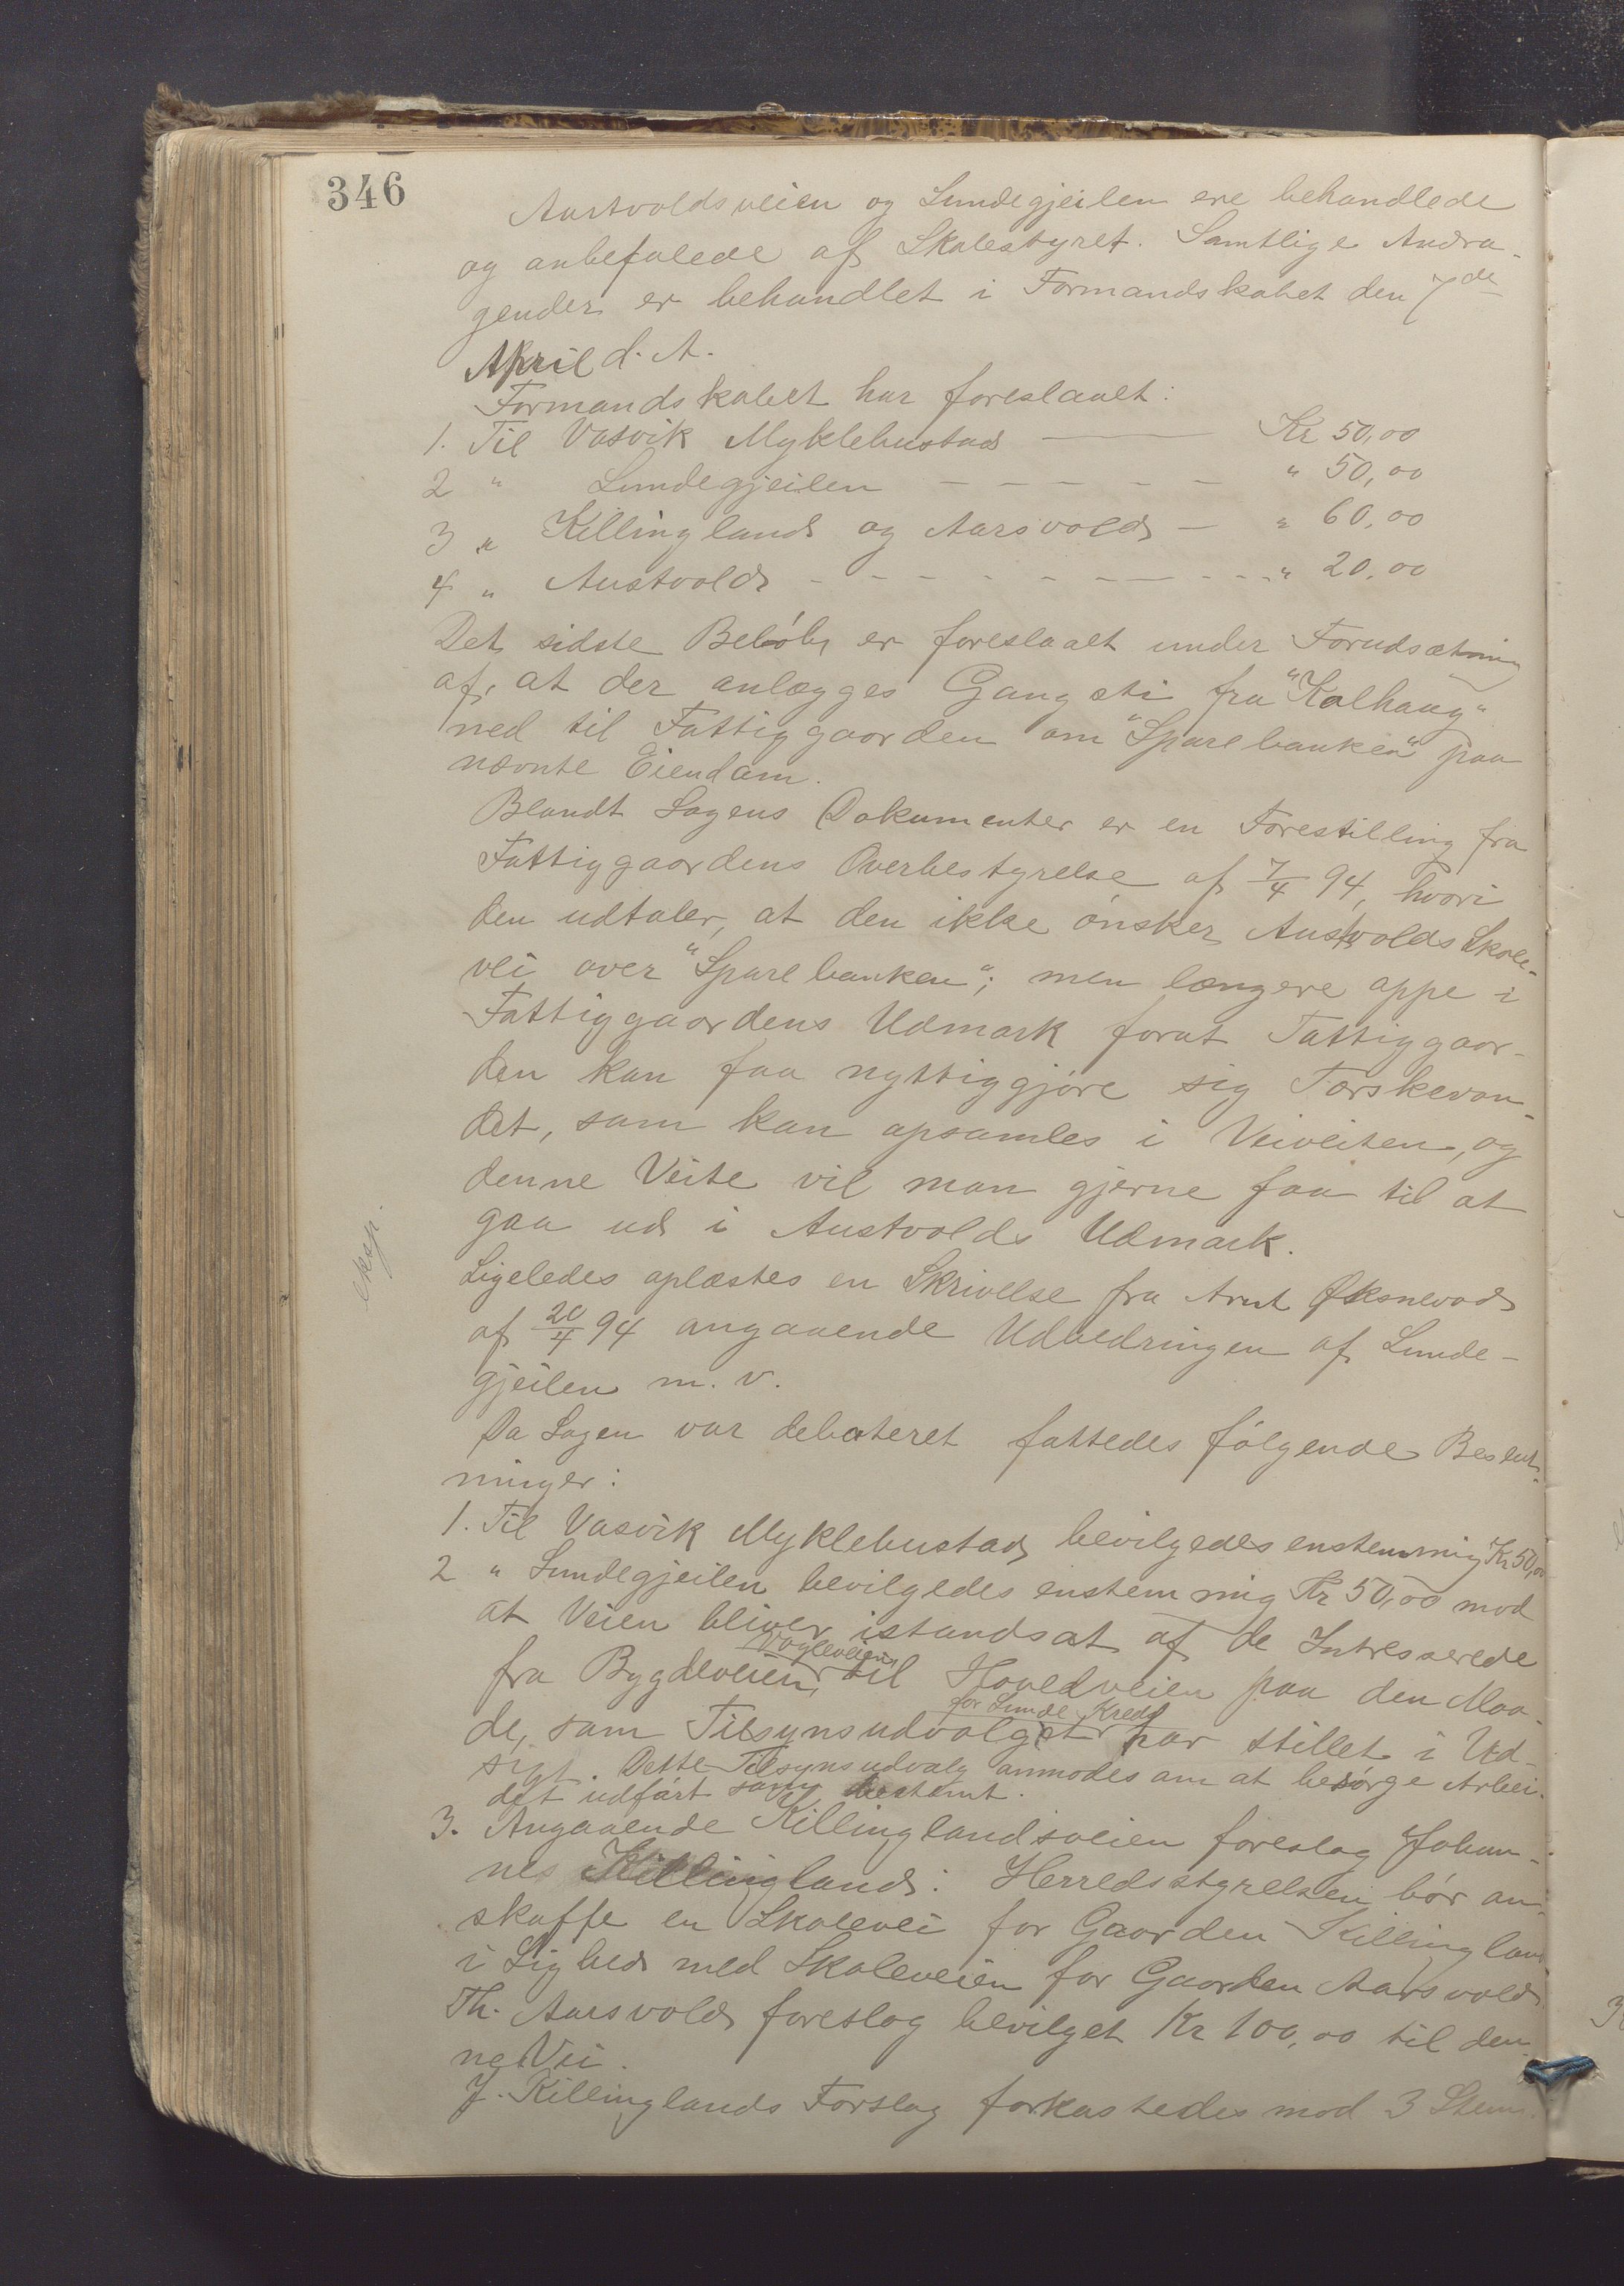 346
Austvoldsveien og Lundegjeilen ere behandlede
og anbefalede af Skolestyret. Samtlige Andra-
gender er behandlet i Formandskabet den 7de
April d. A.
Formandskabet har foreslaaet:
1. Til Vasvik Myklebustad — Kr 50,00
2 " Lundegjeilen — — — — — " 50,00
3 " Killingland og Aarsvold — " 60,00
4 " Austvold - - - - - - - - - " 20,00
Det sidste Beløb er foreslaaet under Forudsætning
af, at der anlægges Gangsti fra "Kalhaug"
ned til Fattiggaarden om "Sparebanken" paa
nævnte Eiendom.
Blandt Sagens Dokumenter er en Forestilling fra
Fattiggaardens Overbestyrelse af 7/4 94, hvori
den udtaler, at den ikke ønsker Austvolds Skole-
vei over "Sparebanken"; men længere oppe i
Fattiggaardens Udmark forat Fattiggaar-
den kan faa nyttiggjøre sig Tærskevan-
det, som kan opsamles i Veiveiten, og
denne Veite vil man gjerne faa til at
gaa ud i Austvolds Udmark.
eksp.
Ligeledes oplæstes en Skrivelse fra Arnt Øksnevad
af 20/4 94 angaaende Udbedringen af Lunde-
gjeilen m. v.
Da Sagen var debateret fattedes følgende Beslut-
ninger:
1. Til Vasvik Myklebustad bevilgedes enstemmig Kr 50,00
2 " Lundegjeilen bevilgedes enstemmig Kr 50,00 mod
at Veien bliver istandsat af de Intresserede
Vagleveien
fra Bygdeveien, til Hovedveien paa den Maa-
for Lunde Kreds
de, som Tilsynsudvalget har stillet i Ud-
sigt. Dette Tilsynsudvalg anmodes om at besørge Arbei-
det udført som bestemt.
3. Angaaende Killinglandsveien foreslog Johan-
nes Killingland: Herredsstyrelsen bør an-
skaffe en Skolevei for Gaarden Killingland
i Lighed med Skoleveien for Gaarden Aarsvold.
Th. Aarsvold foreslog bevilget Kr 100,00 til den-
ne Vei.
J. Killinglands Forslag forkastedes mod 3 Stem.